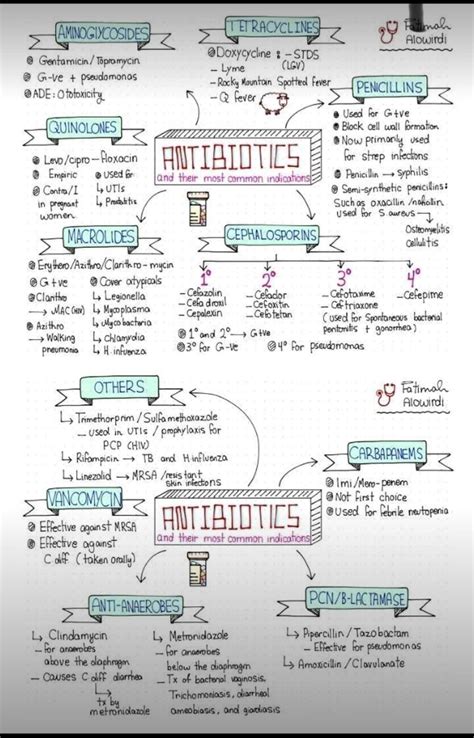 AMINOGLYCOSIDES
@ Gentamicin / Topromycin
@ G-ve + pseudomonas
@ ADE: Ototoxicity
TETRACYCLINES
@ Doxycycline :- STDS
(LGV)
- Lyme
- Rocky Mountain Spotted fever
- Q fever
Fatimah
Alowirdi
PENICILLINS
Used for G+ve
Block cell wall formation
Now primarily used
for strep infections
Penicillin → syphilis
Semi-synthetic penicillins:
Such as oxacillin / nafcillin
used for S. aureus
Osteomyelitis
cellulitis
QUINOLONES
Levo/cipro - floxacin
Empiric
Contra/I
in pregnant
women
used for
UTIs
Prostatitis
ANTIBIOTICS
and their most common indications
MACROLIDES
Erythero/Azithro/Clarithro - mycin
G+ve
Claritho
→ MAC (HIV)
Azithro
→ Walking
pneumonia
Cover atypicals
Legionella
Mycoplasma
Mycobacteria
Chlamydia
H. infvenza
CEPHALOSPORINS
1°
- Cefazolin
- Cefadroxil
- Cepalexin
2°
- Cefaclor
- Cefoxitin
- Cefotetan
3°
- Cefotaxime
- Ceftriaxone
(used for Spontaneous bacterial
peritonitis + gonorrhea)
4°
- Cefepime
@ 1° and 2° → G+ve
@ 3° for G-ve
@ 4° for pseudomonas
OTHERS
↳ Trimethorprim / Sulfamethoxazole
- used in UTIs / prophylaxis for
PCP (HIV)
↳ Rifampicin → TB and H influenza
↳ Linezolid → MRSA / resistant
skin infections
Fatimah
Alowirdi
CARBAPANEMS
@ Imi / Mero- penem
@ Not first choice
@ Used for febrile neutopenia
VANCOMYCIN
@ Effective against MRSA
@ Effective against
C diff (taken orally)
ANTIBIOTICS
and their most common indications
ANTI-ANAEROBES
↳ Clindamycin
- for anaerobes
above the diaphragm
- Causes C diff diarrhea
↳ tx by
metronidazole
↳ Metronidazole
- for anaerobes
below the diaphragm
- Tx of bacterial vaginosis,
Trichomoniasis, diarrheal
ameobiasis, and giardiasis
PCN/B-LACTAMASE
↳ Pipercillin / Tazobactam
- Effective for pseudomonas
↳ Amoxicillin / Clavulanate